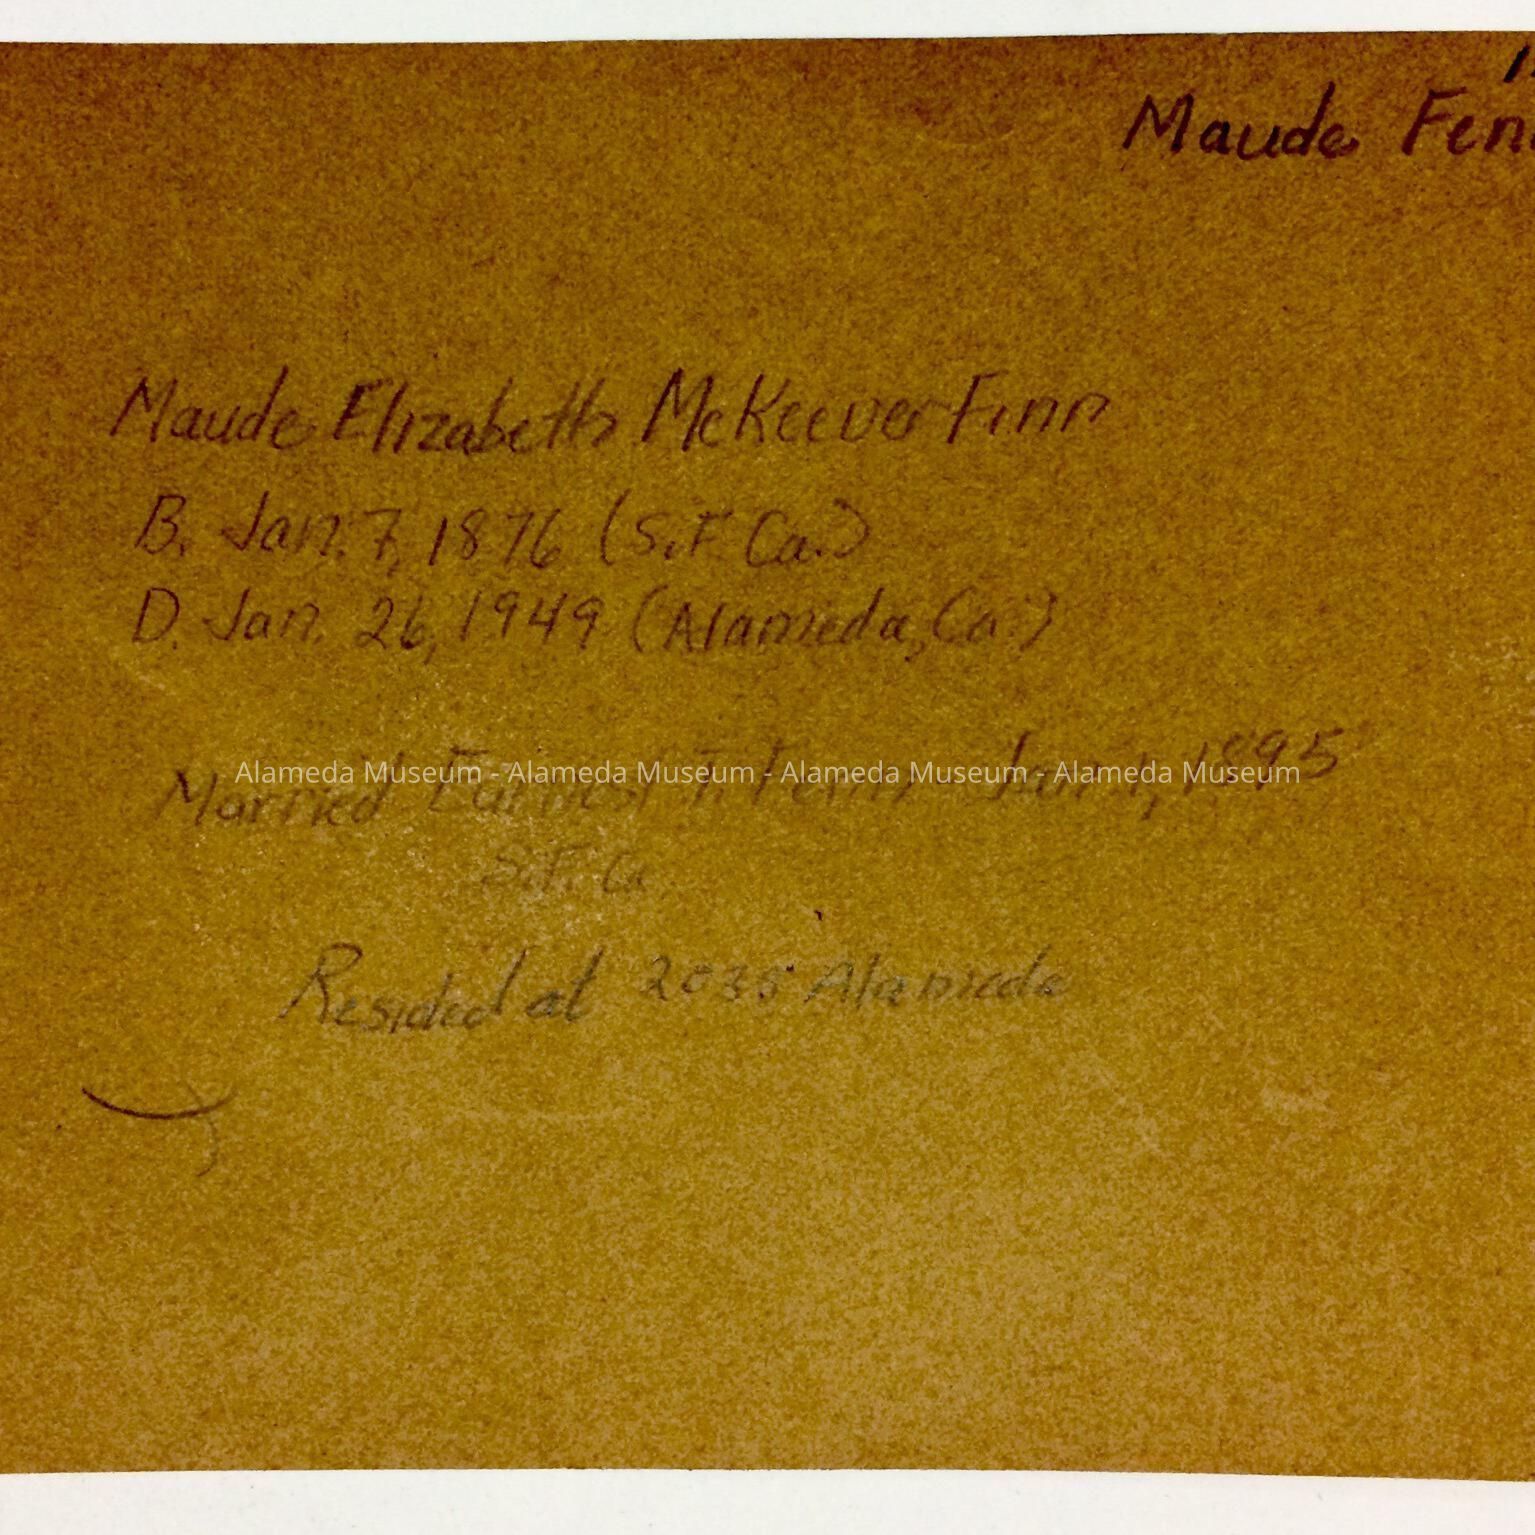 Maude Fen
Maude Elizabeth McKeever Finn
B. Jan. 7, 1876 (S.F. Ca.)
D. Jan. 26, 1949 (Alameda, Ca.)
Alameda Museum - Alameda Museum - Alameda Museum - Alameda Museum
Married 1895
S.F. Ca
Resided at 2035 Alameda